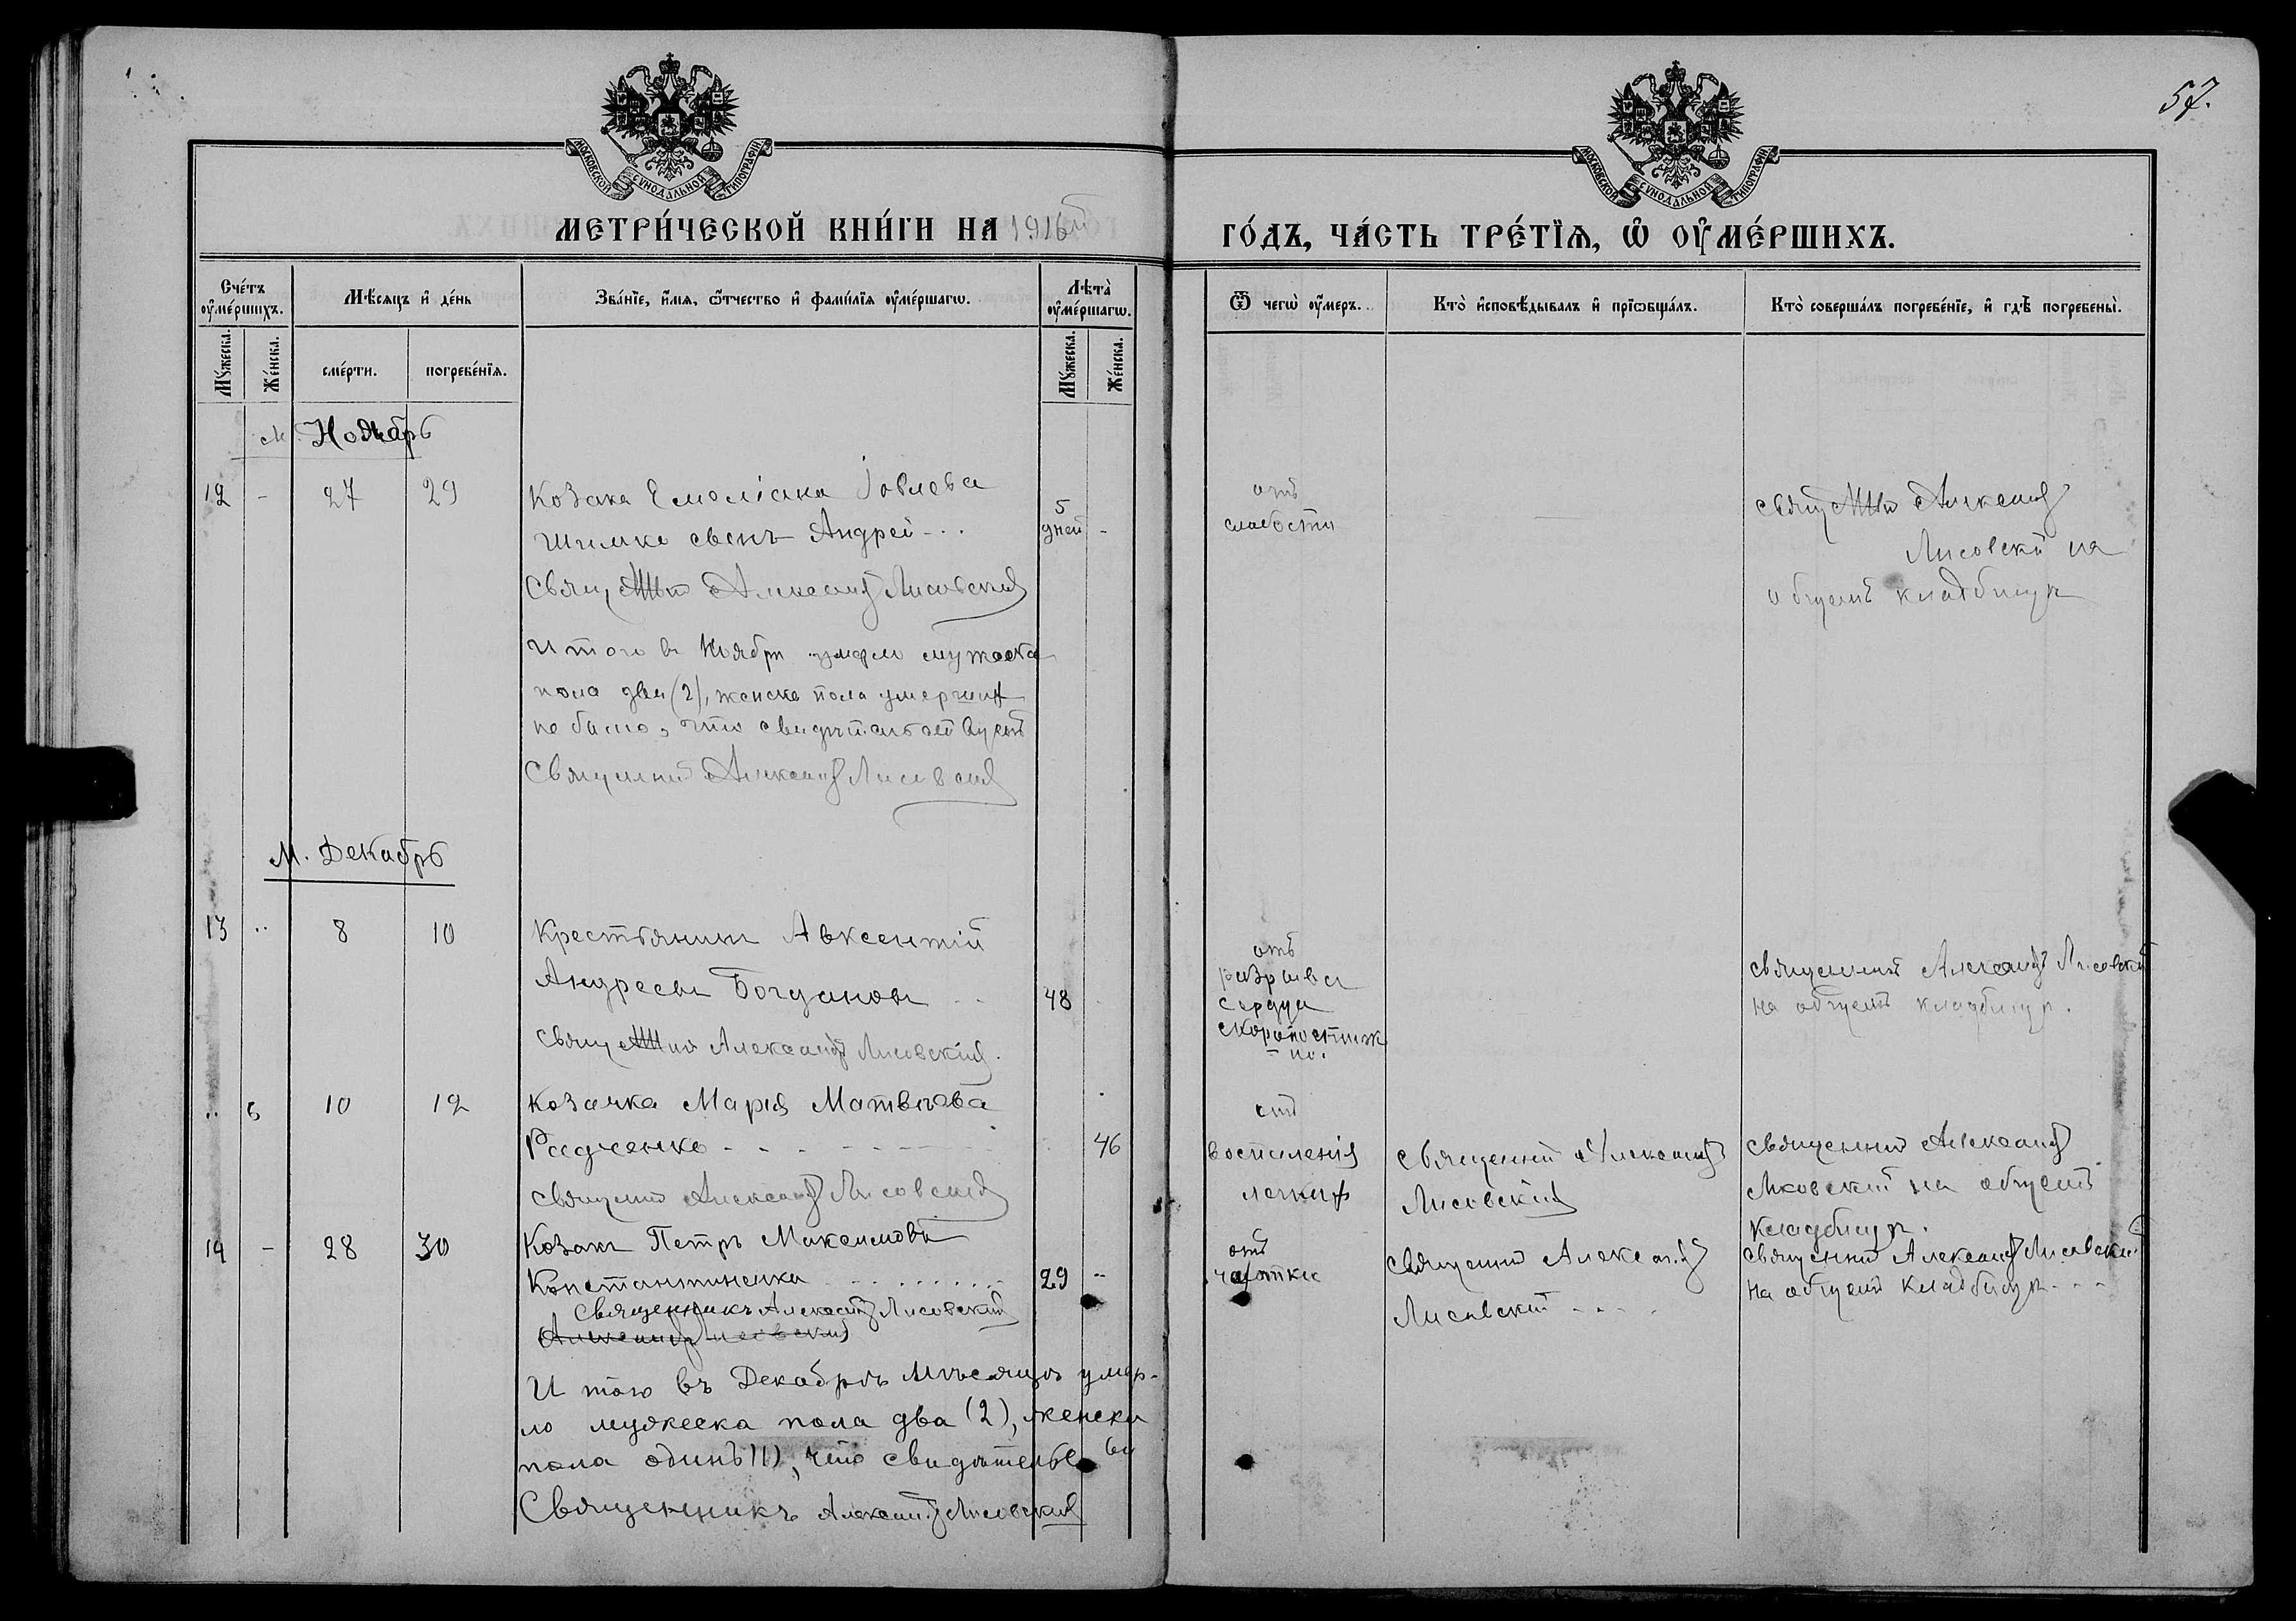 57.
МОСКОВСКОЙ СѴНОДАЛЬНОЙ ТИПОГРАФІИ
МОСКОВСКОЙ СѴНОДАЛЬНОЙ ТИПОГРАФІИ
МЕТРИ́ЧЕСКОЙ КНИ́ГИ НА 1916й
ГО́ДЪ, ЧА́СТЬ ТРЕ́ТЇѦ, Ѡ҆ ОУ҆МЕ́РШИХЪ.
Сче́тъ оу҆ме́ршихъ.
Мѣ́сяцъ и҆ де́нь
Зва́нїе, и҆́мѧ, ѿтчество и҆ фами́лїѧ оу҆ме́ршагѡ.
Лѣта̀ оу҆ме́ршагѡ.
Мꙋ́жеска.
Же́нска.
сме́рти.
погребе́нїѧ.
Мꙋ́жеска.
Же́нска.
Ѿ чегѡ̀ оу҆́меръ.
Кто̀ и҆сповѣ́дывалъ и҆ прїѡбща́лъ.
Кто̀ соверша́лъ погребе́нїе, и҆ гдѣ̀ погребены̀.
м. Ноябрь
12 - 27 29 Козака Емеліана Іовлева
Шимко сынъ Андрей - . . 5 дней -
Священникъ Александръ Лисовскій
отъ
слабости
священникъ Александръ
Лисовскій на
общемъ кладбищѣ
Итого въ Ноябрѣ умерло мужеска
пола два (2), женска пола умершихъ
не было, что свидѣтельствуетъ
Священникъ Александръ Лисовскій
М. Декабрь
13 .. 8 10 Крестьянинъ Авксентій
Андреевъ Богдановъ . . 48
священникъ Александръ Лисовскій.
отъ
разрыва
сердца
скоропостиж
=но.
священникъ Александръ Лисовскій
на общемъ кладбищѣ.
.. 6 10 12 Козачка Марія Матвѣева
Радченко - - - - - 46
священникъ Александръ Лисовскій
отъ
воспаленія
легкихъ
священникъ Александръ
Лисовскій
священникъ Александръ
Лисовскій на общемъ
кладбищѣ.
14 - 28 30 Козакъ Петръ Максимовъ
Константиненко . . . . . . 29 --
Священникъ Александръ Лисовскій
Александръ Лисовскій
отъ
чахотки
священникъ Александръ
Лисовскій - - - -
священникъ Александръ Лисовскій
на общемъ кладбищѣ - - -
Итого въ Декабрѣ мѣсяцѣ умер-
ло мужеска пола два (2), женска
пола одинъ (1), что свидѣтельс
Священникъ Александръ Лисовскій